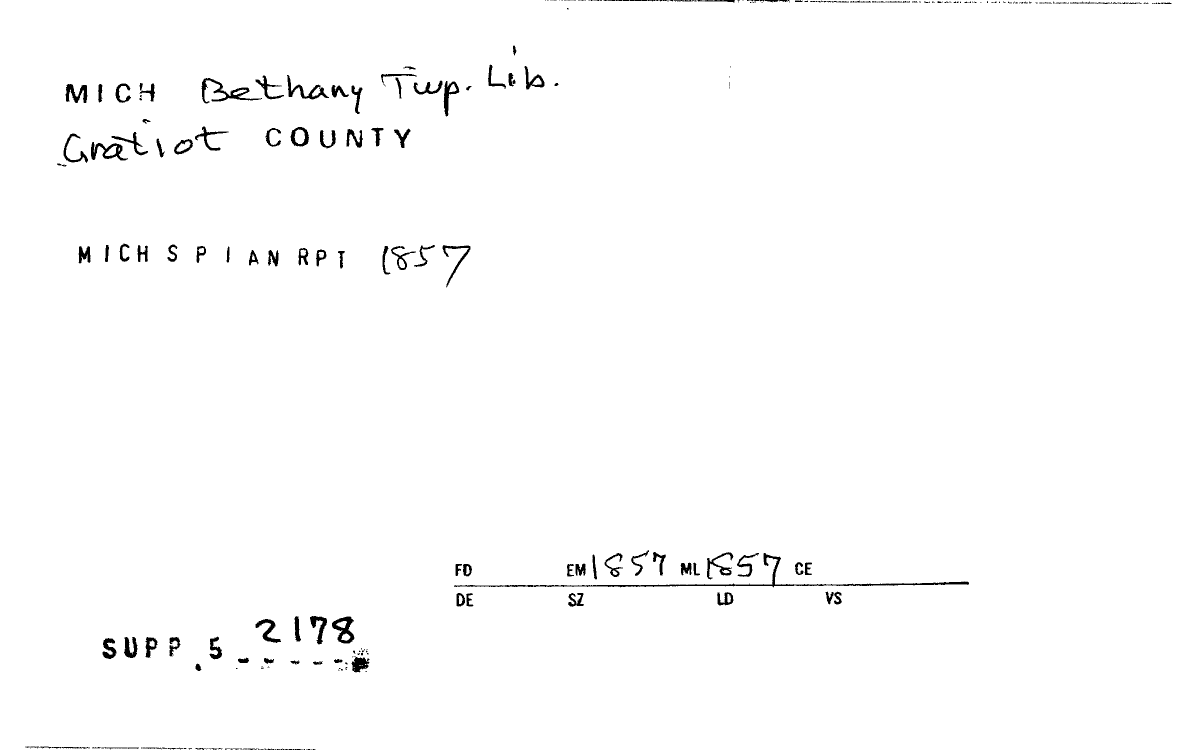 MICH Bethany Twp. Lib.
Gratiot COUNTY
MICH S P I AN RPT 1857
FD EM 1857 ML 1857 CE
DE SZ LD VS
SUPP. 5 2178